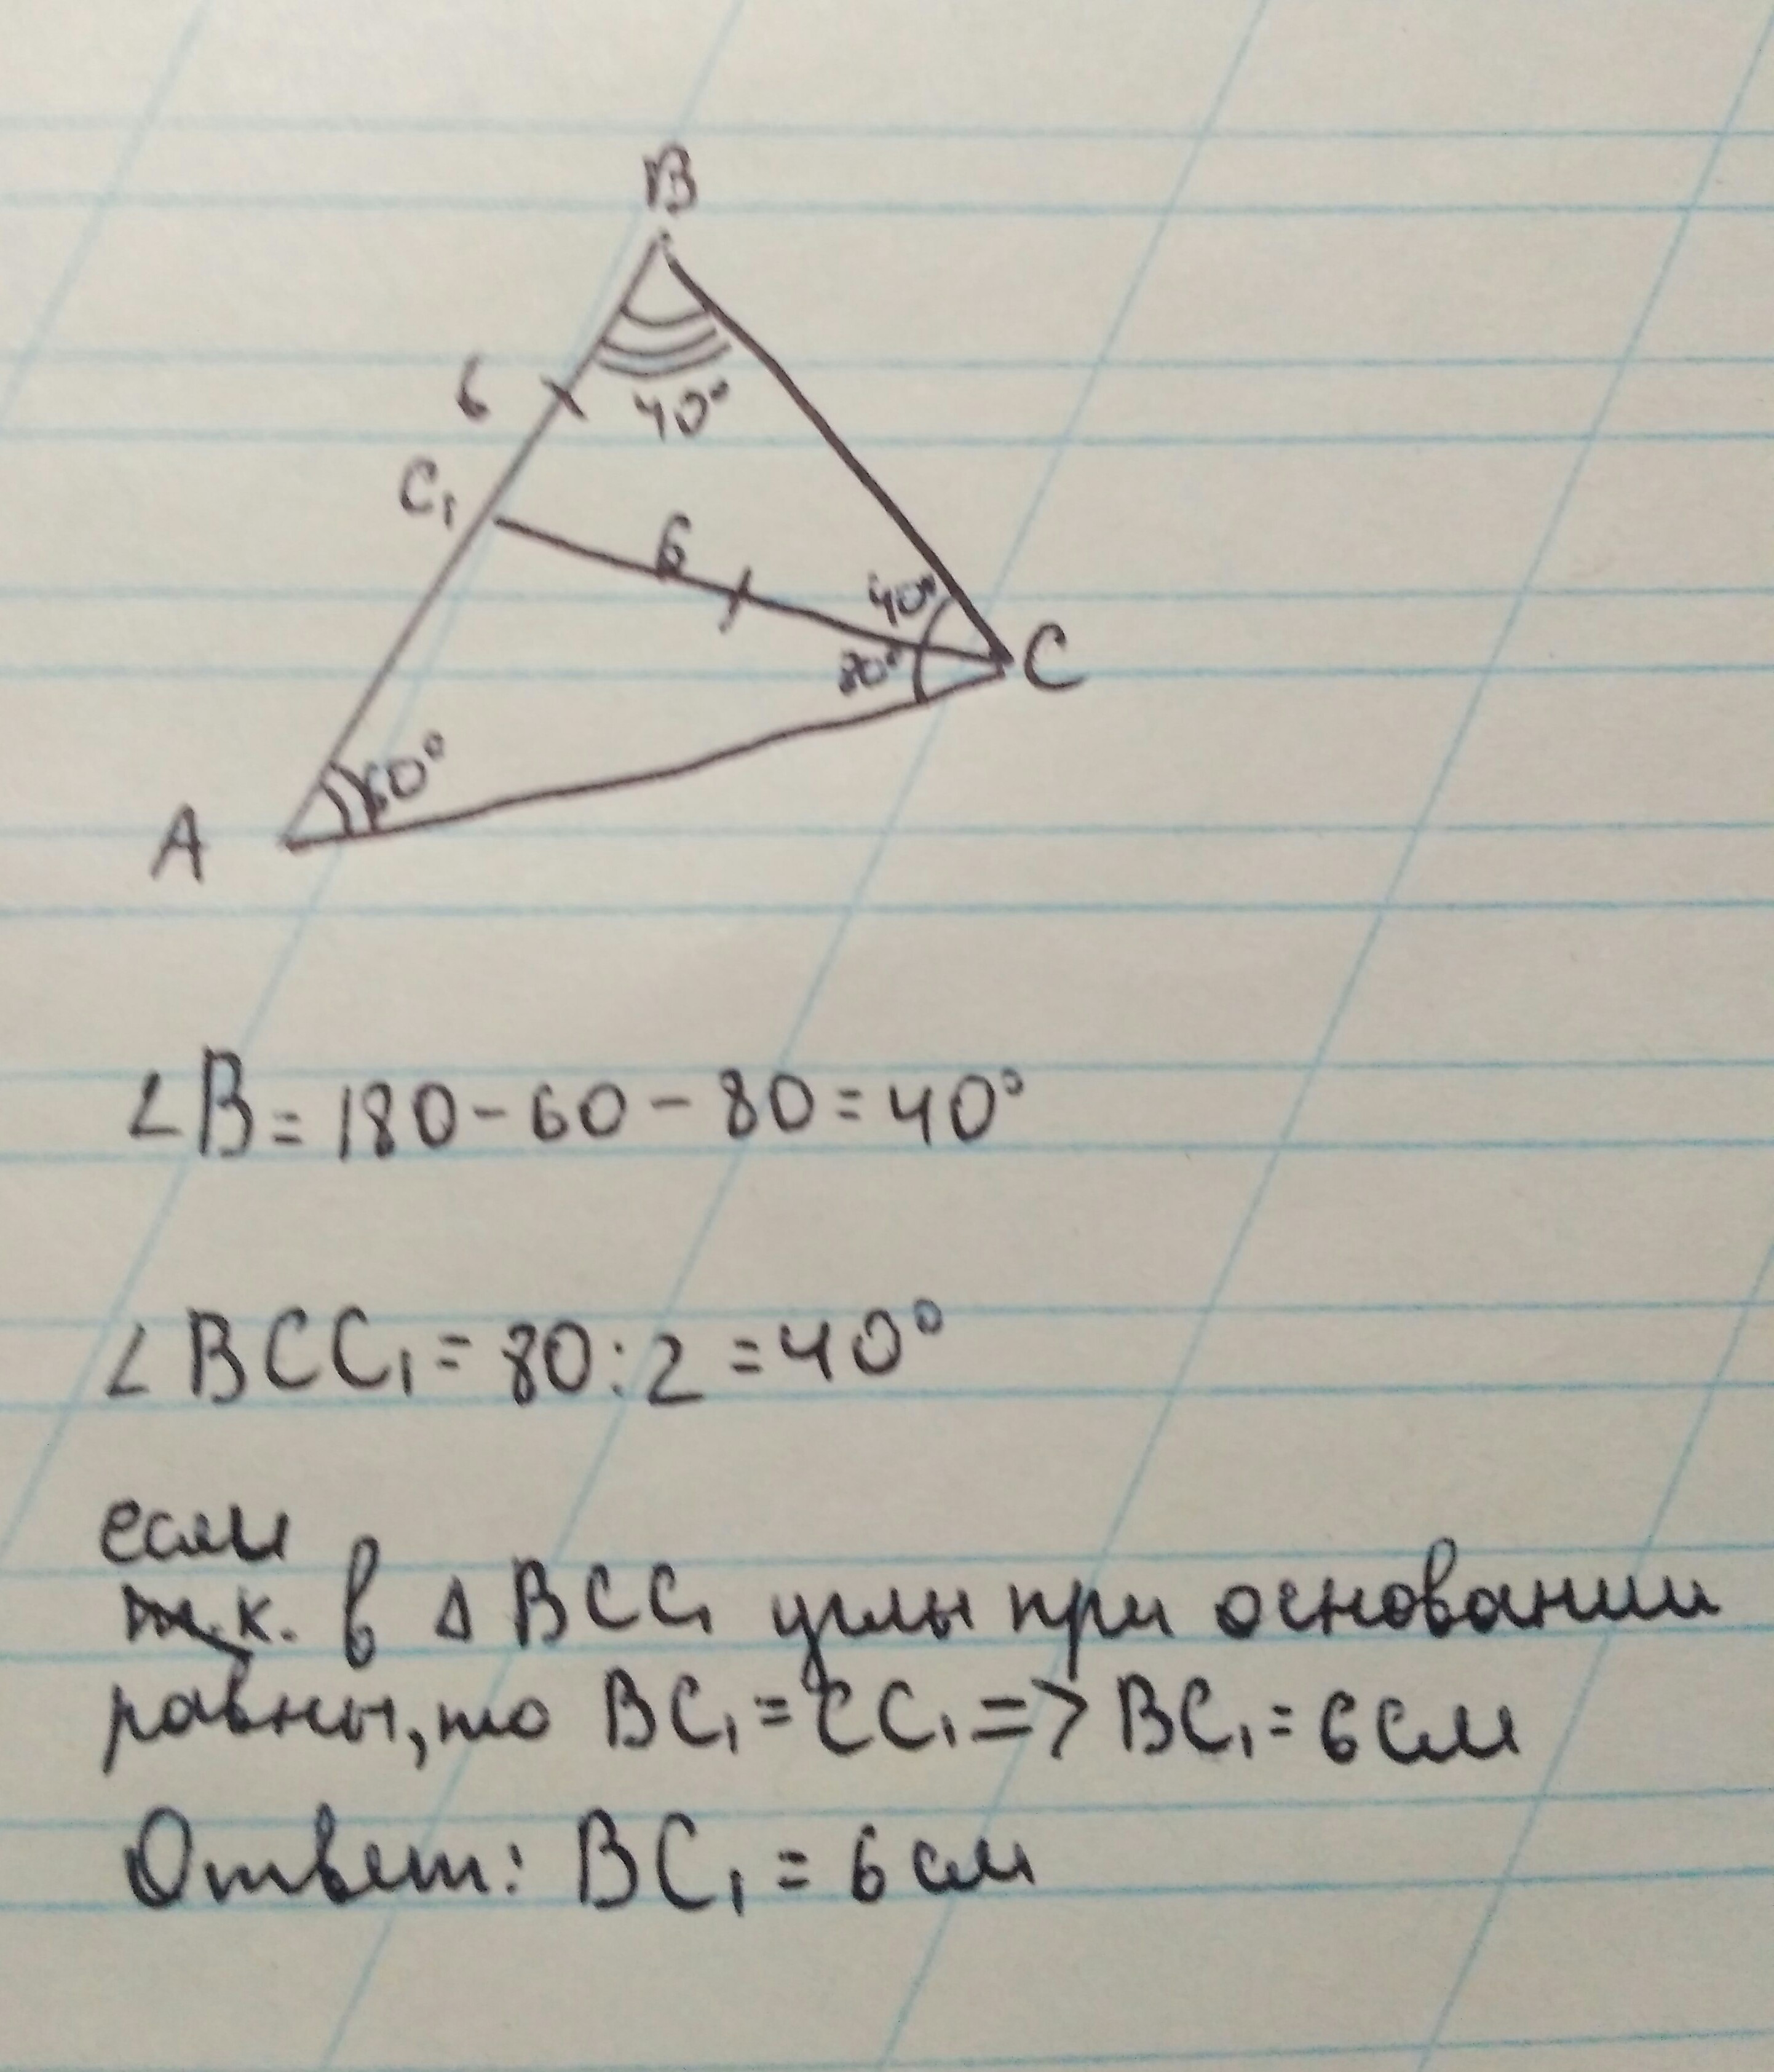 B
6
40°
C₁
6
40°
80°
C
60°
A
∠B = 180 - 60 - 80 = 40°
∠BCC₁ = 80 : 2 = 40°
если
т.к. в Δ BCC₁ углы при основании
равны, то BC₁ = CC₁ => BC₁ = 6 см
Ответ: BC₁ = 6 см